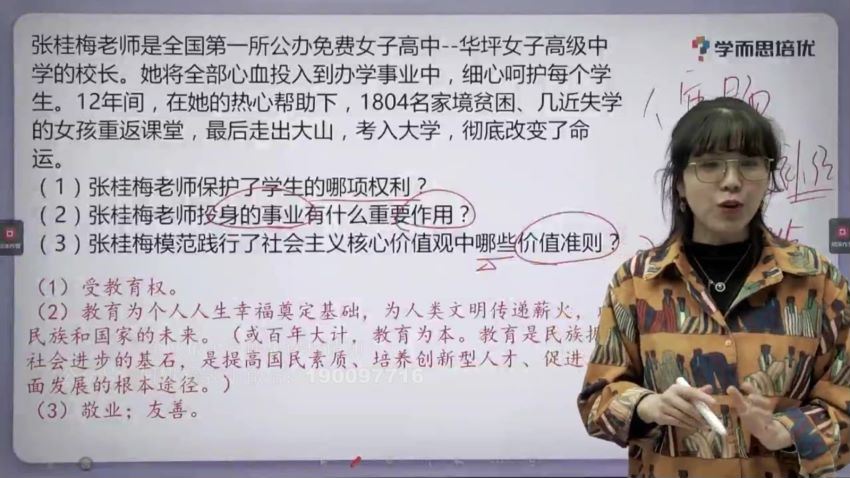 学而思培优
张桂梅老师是全国第一所公办免费女子高中--华坪女子高级中
学的校长。她将全部心血投入到办学事业中，细心呵护每个学
生。12年间，在她的热心帮助下，1804名家境贫困、几近失学
的女孩重返课堂，最后走出大山，考入大学，彻底改变了命
运。
（1）张桂梅老师保护了学生的哪项权利？
（2）张桂梅老师投身的事业有什么重要作用？
（3）张桂梅模范践行了社会主义核心价值观中哪些价值准则？
（1）受教育权。
（2）教育为个人人生幸福奠定基础，为人类文明传递薪火，
民族和国家的未来。（或百年大计，教育为本。教育是民族
社会进步的基石，是提高国民素质、培养创新型人才、促进
面发展的根本途径。）
190097716
（3）敬业；友善。